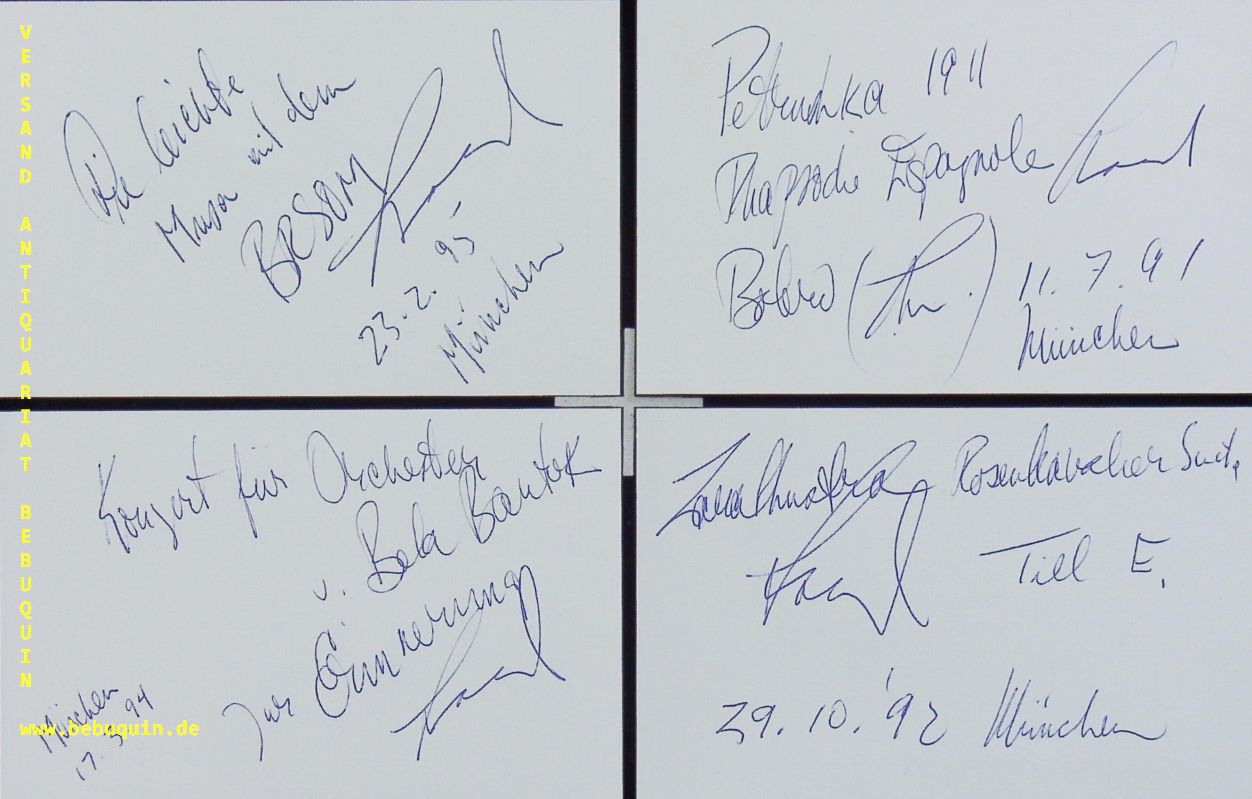 VERSAND ANTIQUARIAT BEBUQUIN
www.bebuquin.de
Die leichte
Musen mit dem
BRSOM
23.2.95
München
Petrushka 1911
Rhapsodie Espagnole
Bolero
11.7.91
München
Konzert für Orchester
v. Bela Bartok
Zur Erinnerung
München
17.5.94
Zarathustra Rosenkavalier Suite
Till E.
29.10.'92 München